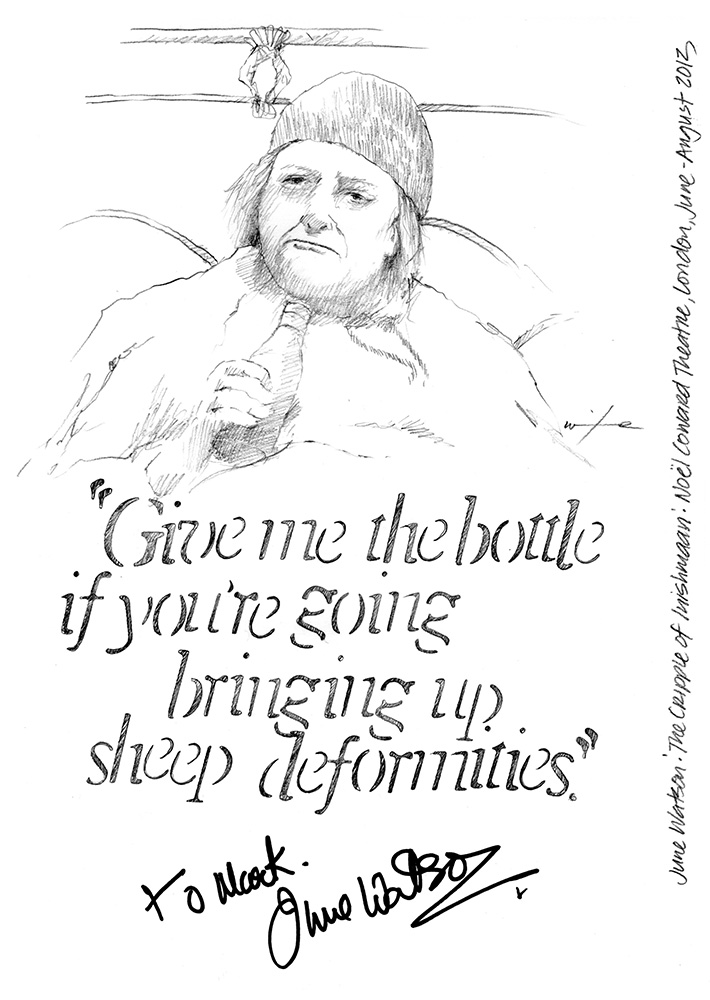 "Give me the bottle
if you're going
bringing up
sheep deformities."
to Mark.
June Watson x
June Watson · The Cripple of Inishmaan · Noël Coward Theatre, London, June - August 2013